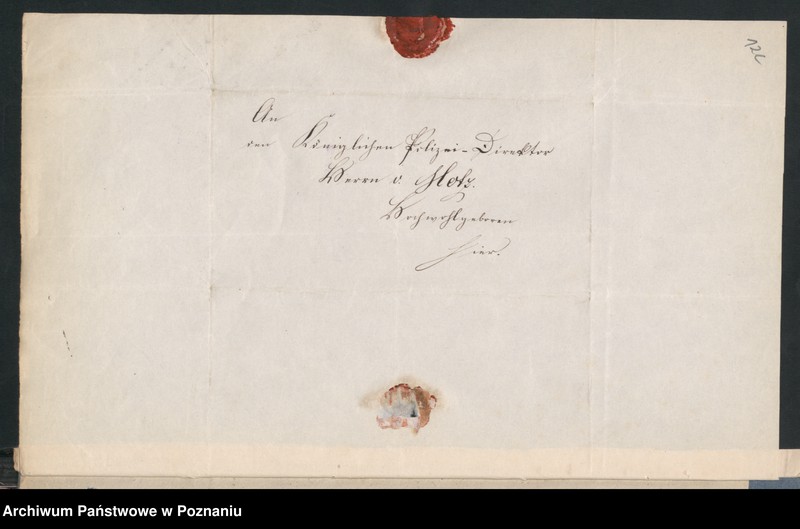 126
An
den Königlichen Polizei-Direktor
Herrn v.
Hochwohlgeboren
hier.
Archiwum Państwowe w Poznaniu